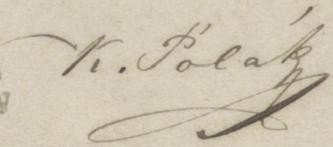 K. Polák